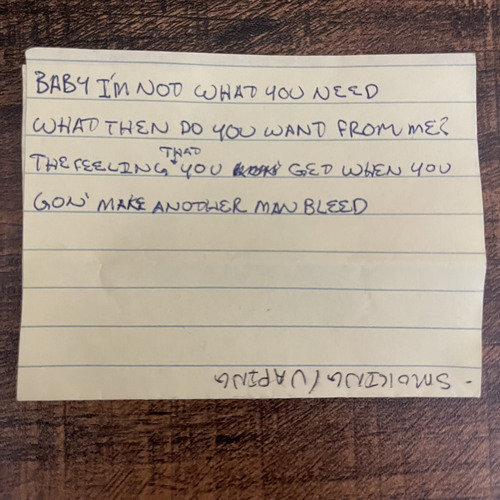 BABY I'M NOT WHAT YOU NEED
WHAT THEN DO YOU WANT FROM ME?
THE FEELING THAT YOU GET WHEN YOU
GON' MAKE ANOTHER MAN BLEED
- SMOKING/VAPING